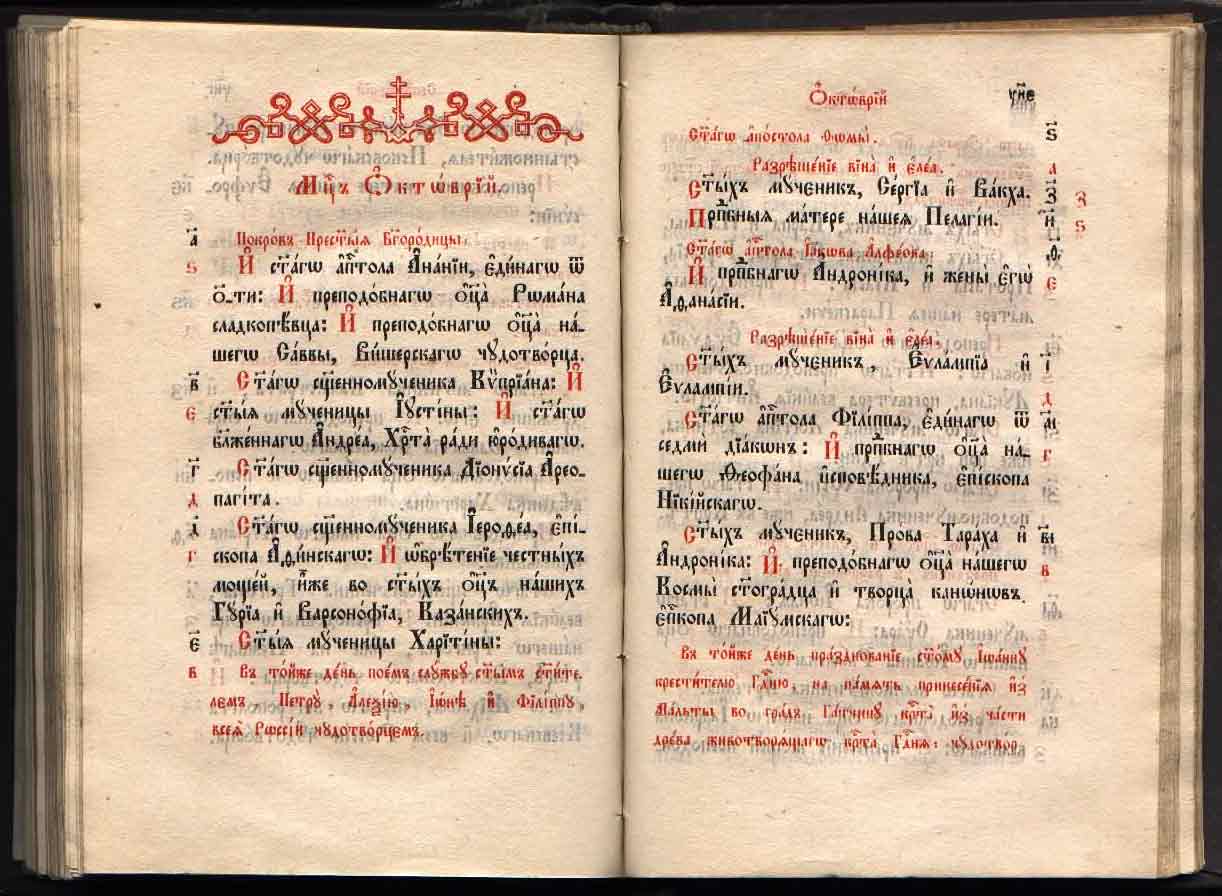 Мцⷭ҇ъ Ѻ҆ктѡ́врїй.
а҃ Покро́въ Прест҃ы́ѧ Бг҃оро́дицы.
ѕ И҆ ст҃а́гѡ а҆пⷭ҇тола А҆на́нїи, є҆ди́нагѡ ѿ
о҃-ти: И҆ преподо́бнагѡ ѻ҆ц҃а̀ Рѡма́на
сладкопѣ́вца: И҆ преподо́бнагѡ ѻ҆ц҃а̀ на́-
шегѡ Са́ввы, Ви́шерскагѡ чꙋдотво́рца.
в҃ Ст҃а́гѡ сщ҃енномꙋ́ченика Кѷпрїа́на: И҆
є ст҃ы́ѧ мꙋ́ченицы І҆ꙋсті́ны: И҆ ст҃а́гѡ
бл҃же́ннагѡ А҆ндре́а, Хрⷭ҇та̀ ра́ди ю҆ро́дивагѡ.
г҃ Ст҃а́гѡ сщ҃енномꙋ́ченика Дїонѵ́сїа А҆рео-
д паги́та.
д҃ Ст҃а́гѡ сщ҃енномꙋ́ченика І҆ероѳе́а, є҆пі-
г скопа А҆ѳи́нскагѡ: И҆ ѡ҆брѣ́тенїе честны́хъ
моще́й, и҆́же во ст҃ы́хъ ѻ҆тє́цъ на́шихъ
Гꙋ́рїа и҆ Варсоно́фїа, Каза́нскихъ.
є҃ Ст҃ы́ѧ мꙋ́ченицы Харїті́ны:
в Въ то́йже де́нь пое́мъ слꙋ́жбꙋ ст҃ы́мъ ст҃и́те-
лемъ Петрꙋ̀, А҆леѯі́ю, І҆ѡ́нѣ и҆ Фїлі́ппꙋ,
всеѧ̀ Рѡссі́и чꙋдотво́рцемъ.
Ѻ҆ктѡ́врїй
ѵ҃не
Ст҃а́гѡ а҆по́стола Ѳѡмы̀. ѕ҃
Разрѣше́нїе вїна̀ и҆ є҆ле́а. а
Ст҃ы́хъ мꙋ́ченикъ, Се́ргїа и҆ Ва́кха. з҃ з
Прпⷣбныѧ ма́тере на́шеѧ Пелагі́и. и҃ ѕ
Ст҃а́гѡ а҆пⷭ҇тола І҆а́кѡва А҆лфе́ова: ѳ҃
И҆ прпⷣбнагѡ А҆ндроні́ка, и҆ жены̀ є҆гѡ̀ є
А҆ѳана́сїи.
Разрѣше́нїе вїна̀ и҆ є҆ле́а.
Ст҃ы́хъ мꙋ́ченикъ, Є҆ѵла́мпїа и҆ і҃
Є҆ѵла́мпїи. д
Ст҃а́гѡ а҆пⷭ҇тола Фїлі́ппа, є҆ди́нагѡ ѿ а҃і
седмѝ дїа́кѡнъ: И҆ прпⷣбнагѡ ѻ҆ц҃а̀ на́- г
шегѡ Ѳеофа́на и҆сповѣ́дника, є҆пі́скопа
Нїкі́йскагѡ.
Ст҃ы́хъ мꙋ́ченикъ, Про́ва Тара́ха и҆ в҃і
А҆ндроні́ка: И҆ преподо́бнагѡ ѻ҆ц҃а̀ на́шегѡ в
Космы̀ ст҃огра́дца и҆ творца̀ кано́нѡвъ
є҆пⷭ҇копа Маїꙋ́мскагѡ:
Въ то́йже де́нь пра́зднованїе ст҃о́мꙋ І҆ѡа́ннꙋ
крести́телю Гдⷭ҇ню, на па́мѧть принесе́нїѧ и҆з̾
Ма́льты во гра́дъ Га́тчинꙋ крⷭ҇та̀ и҆з̾ ча́сти
дре́ва животворѧ́щагѡ крⷭ҇та̀ Гдⷭ҇нѧ: чꙋдотво́р